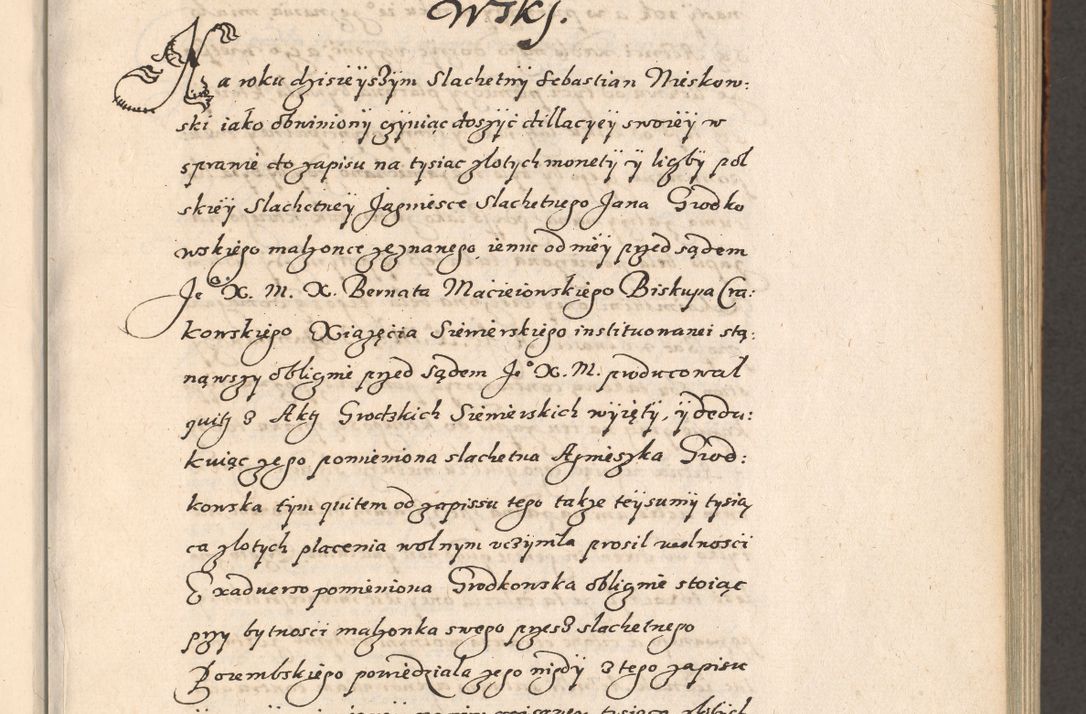 wskj.
Na roku dzisieÿszÿm Slachetnÿ Sebastian Nieskow:
ski iako obwiniony czÿniąc doszÿć dillacÿeÿ swoieÿ w
sprawie do zapisu na tysiac zlotych monetÿ ÿ liczbÿ pol
skieÿ Slachetneÿ Jagniesce Slachetnego Jana Grodko
wskiego malzonce zeznanego iemu od nieÿ przed sądem
Je° X. M. X. Bernata Macieiowskiego Biskupa Cra:
kowskiego Xiązęcia Siewierskiego instituowanei sta:
nąwszy obligznie przed sądem Je° X. M. producowal
quit z Akt Grodzkich Siewierskich wÿięty, ÿ dedu:
kuiąc zego pomieniona slachetna Agnieszka Grod:
kowska tym quitem od zapissu tego takze teÿ sumÿ tysią
ca zlotych placenia wolnym vczÿniła prosil wolnosci
Exaduerso pomieniona Grodkowska obligznie stoiąc
przy bytnosci malzonka swego przesz slachetnego
Porembskiego powiedziala zego nigdÿ z tego zapisu